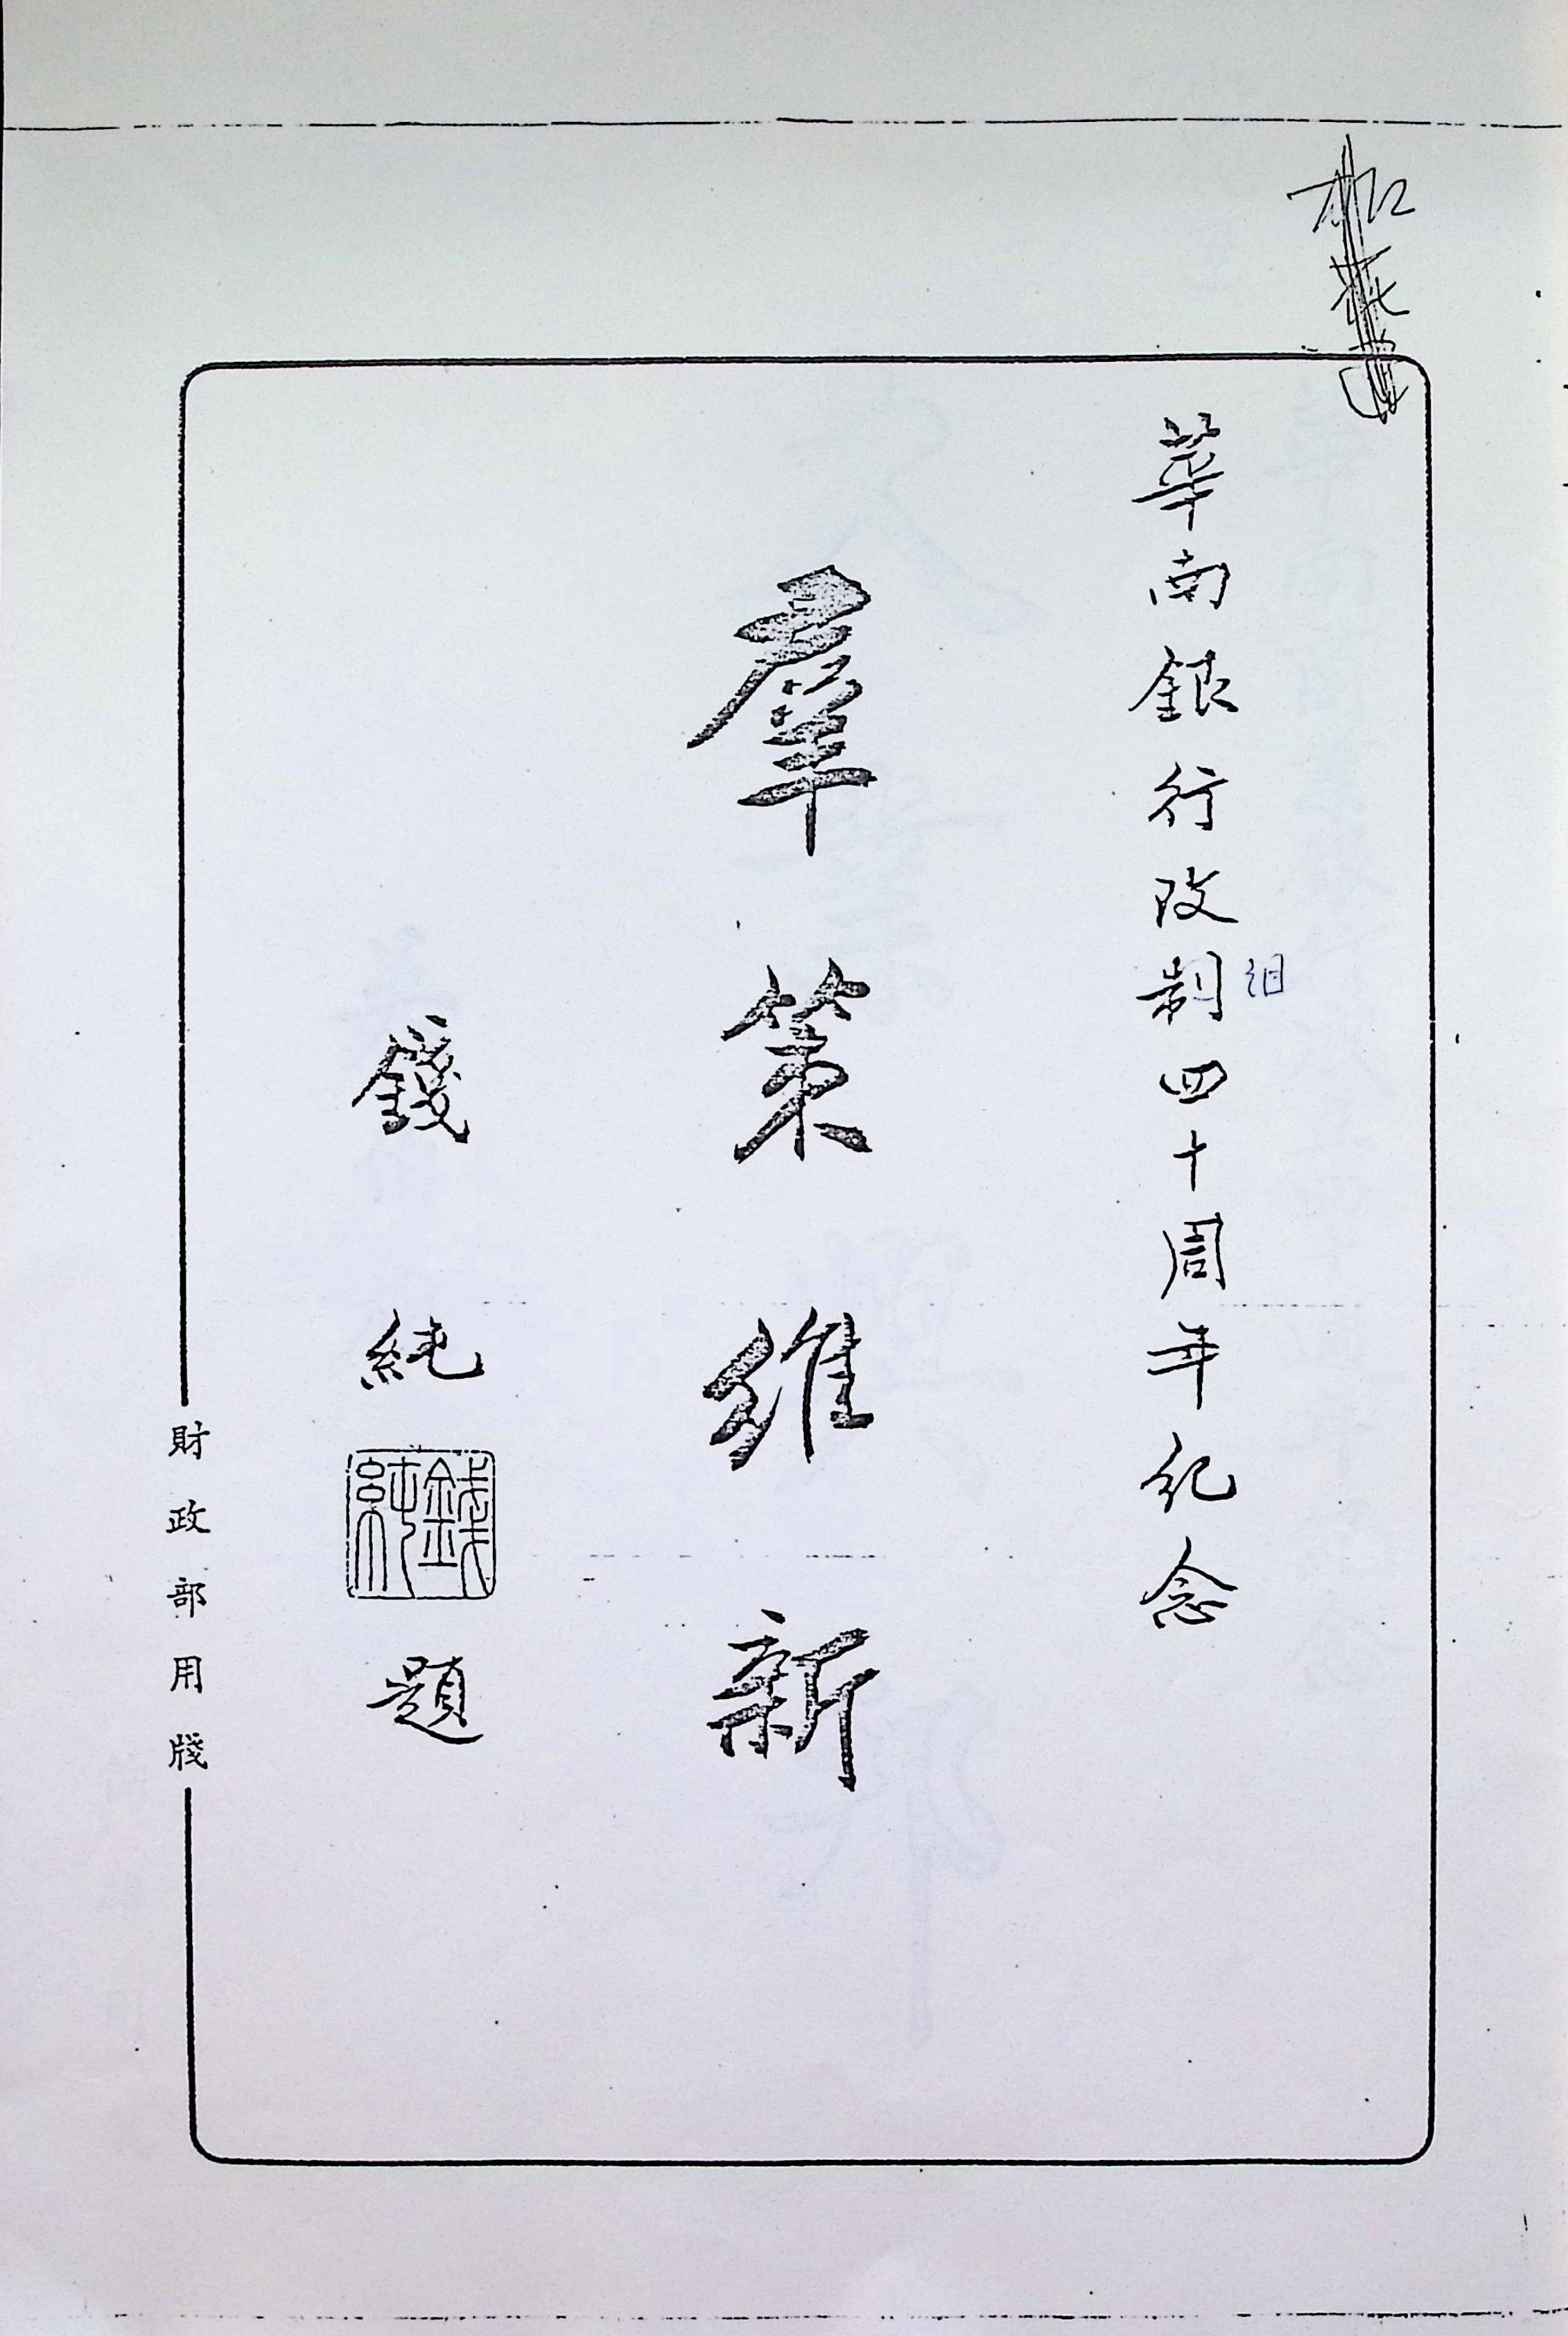 華南銀行改制四十周年紀念
組
羣策維新
錢純
錢純
題
財政部用牋